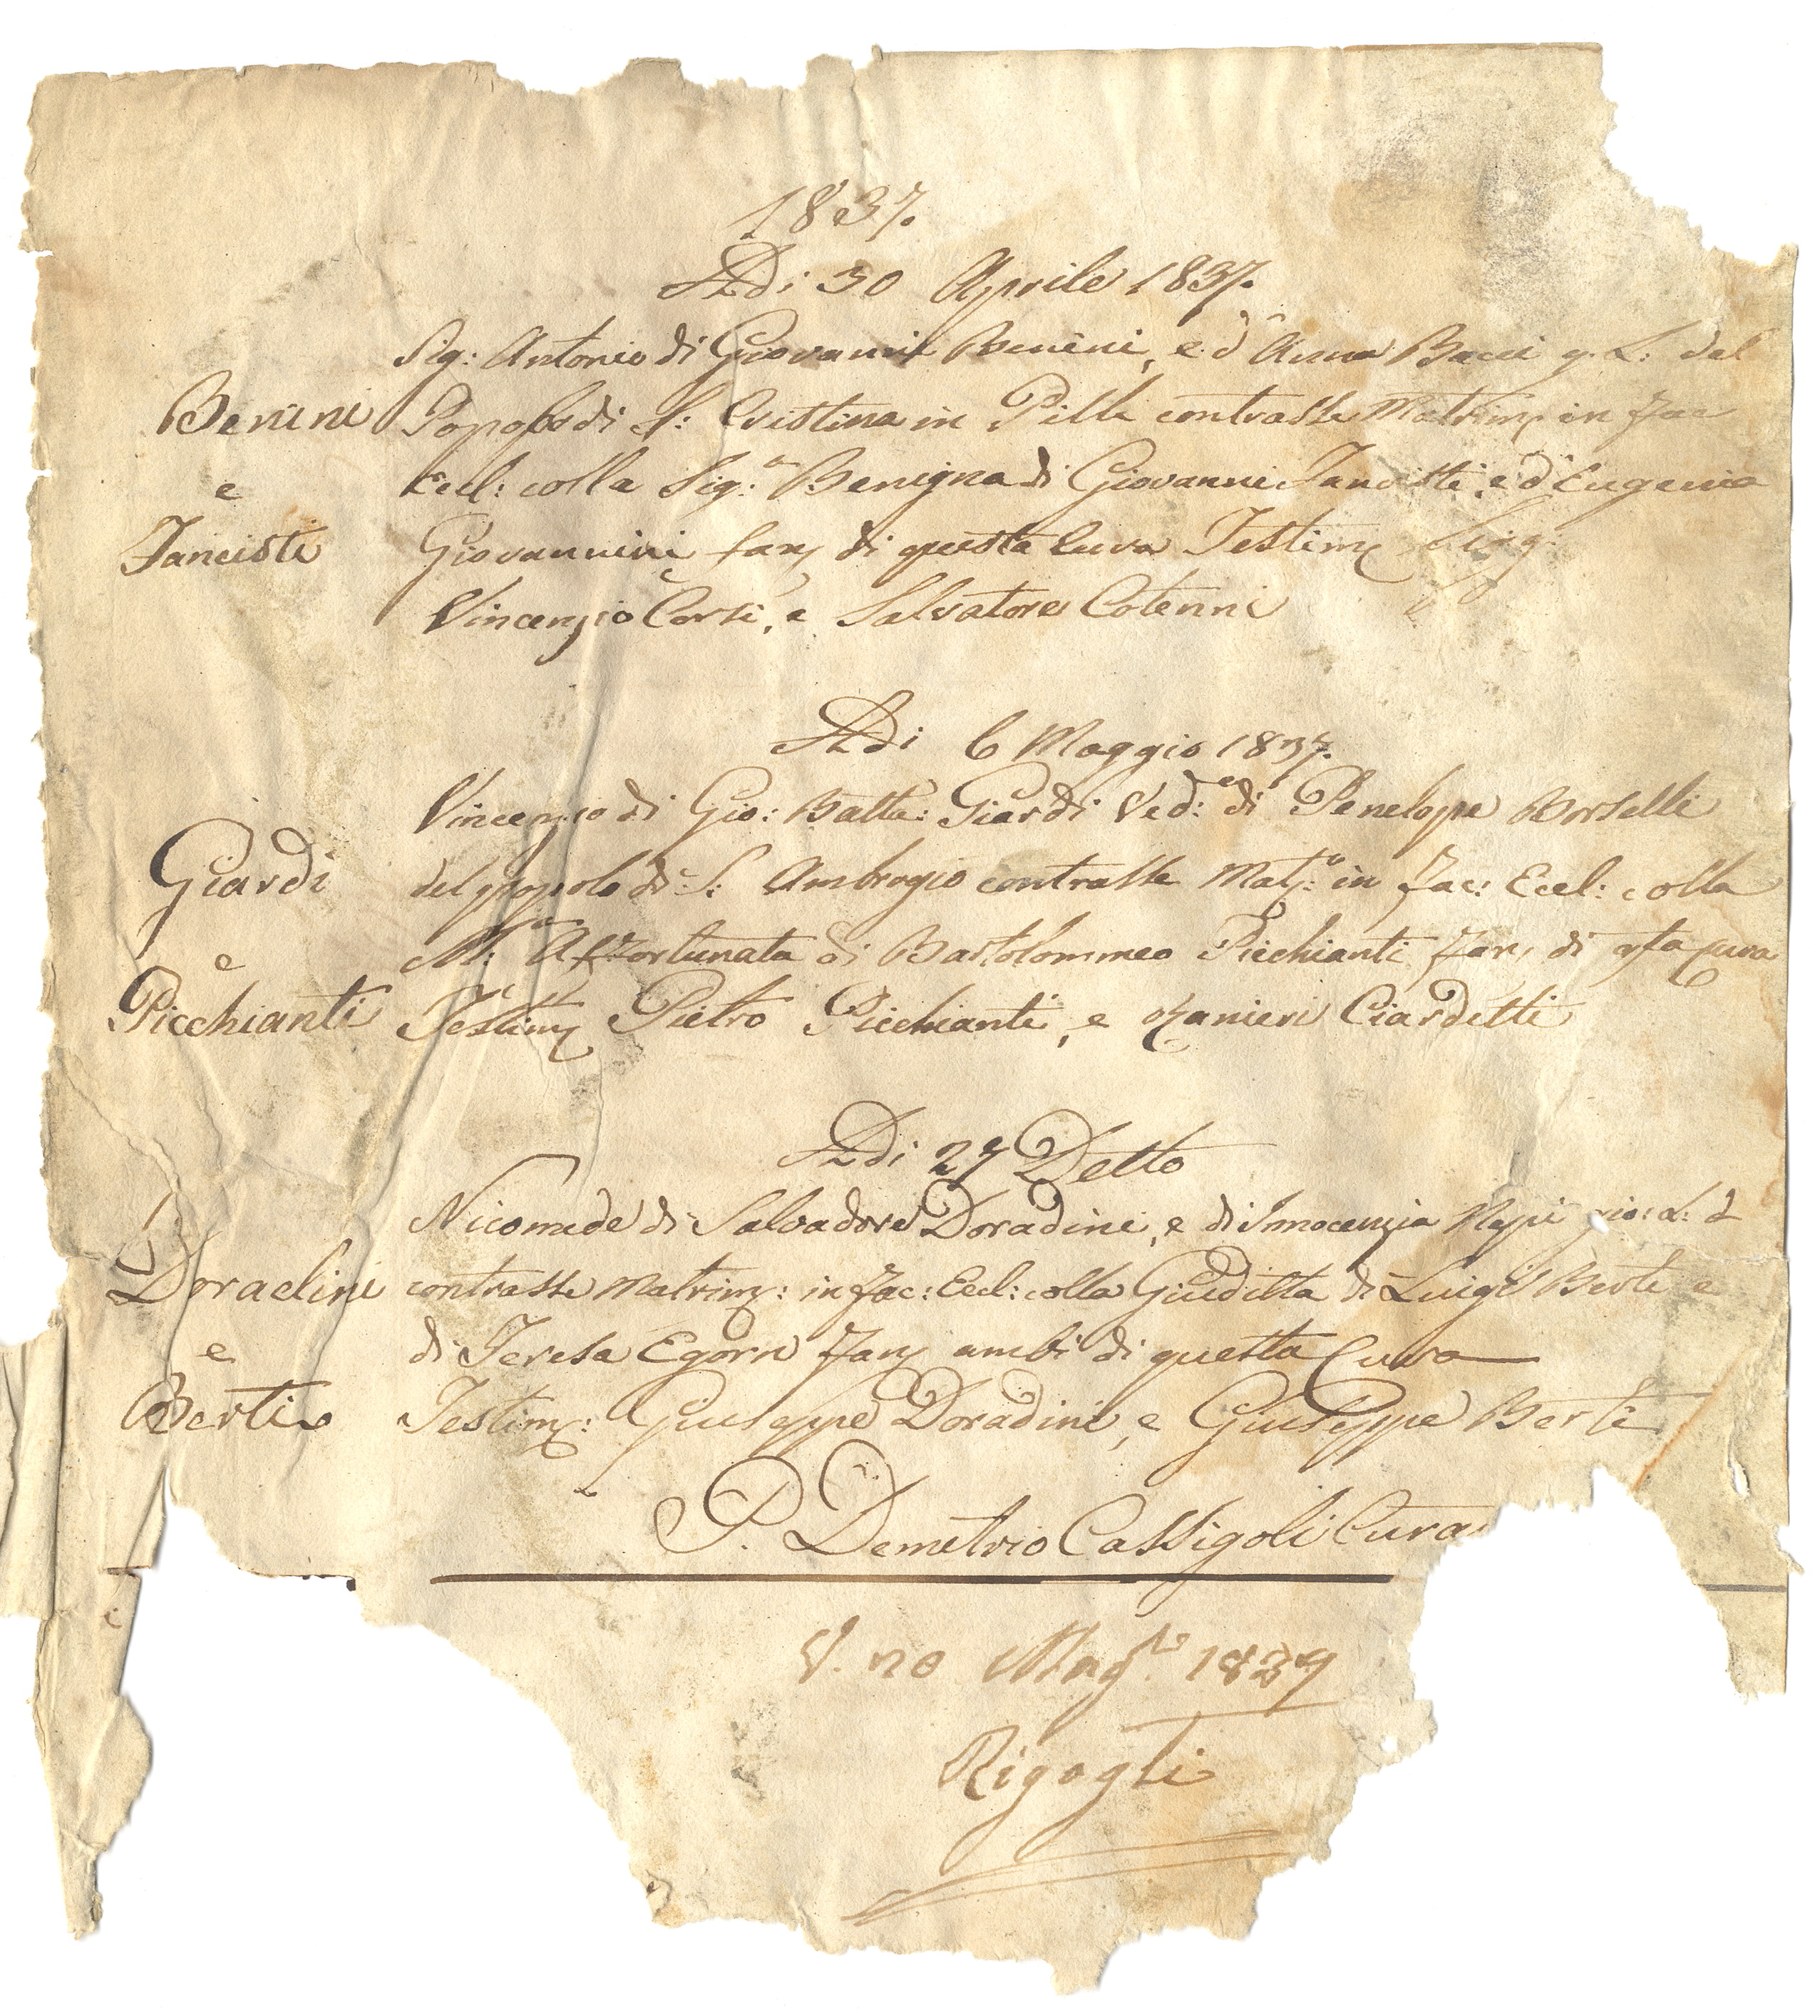 1837.
Adi 30 Aprile 1837.
Sig: Antonio di Giovanni Benini, e d' Anna Bacci q. L: del
Benini Popolo di S: Cristina in Pilli contrasse Matrim in fac
e Eccl: colla Sig:ra Benigna di Giovanni Fancisti, e d' Eugenia
Fancisti Giovannini fan di questa Cura Testim Sigg:
Vincenzio Corsi, e Salvatore Cotenni
Adi 6 Maggio 1837.
Vincenzio di Gio: Batta: Giardi Ved: di Penelope Borselli
Giardi del popolo di S: Ambrogio contrasse Mat:o in fac: Eccl: colla
e M:a Affortunata di Bartolommeo Picchianti fan, di qsta Cura
Picchianti Testim Pietro Picchianti, e Ranieri Ciardetti
Adi 27 Detto
Nicomede di Salvadore Doradini, e di Innocenzia Nepi gio: L: d
Doradini contrasse Matrim: in fac: Eccl: colla Giuditta di Luigi Berti e
di Teresa Egorn fan ambi di questa Cura
e
Berti Testim: Giuseppe Doradini, e Giuseppe Berti
P. Demetrio Cassigoli Cura
V. 20 Mag:o 1839
Rigogli